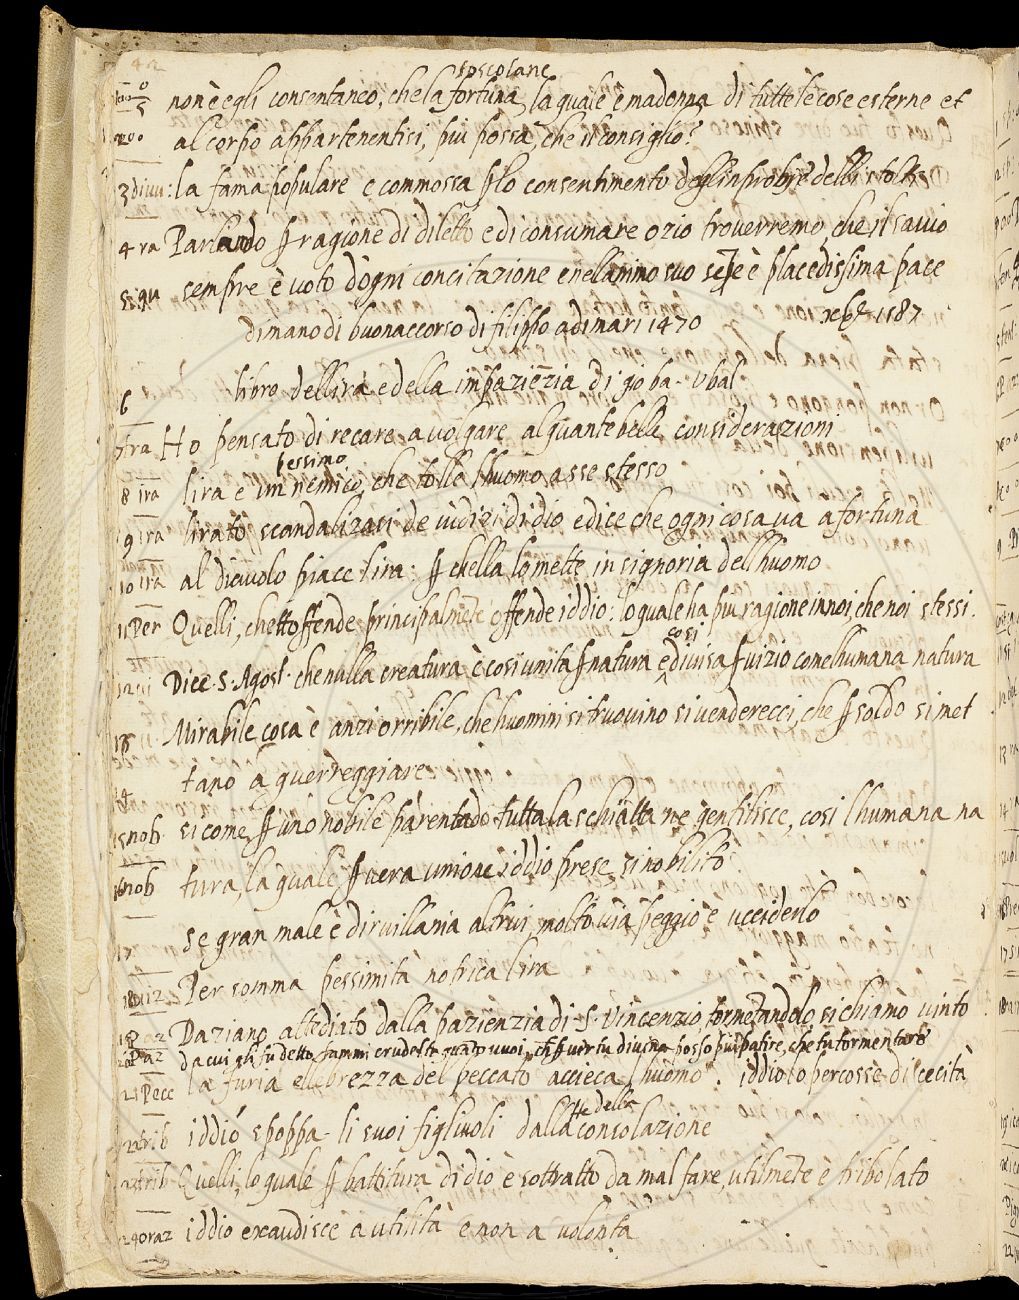 toscolane
non è egli consentaneo, che la fortuna, la quale è madonna di tutte le cose esterne et
al corpo appartenentisi, piu possa, che il consiglio?
3 divu: la fama populare e commossa ꝑ lo consentimento degl'inprobi e delli stolti
4 ra Parlando ꝑ ragione di diletto e di consumare ozio troverremo, che il savio
sempre è voto d'ogni concitazione e nell animo suo sẽpre è placedissima pace
di mano di buonaccorso di filippo adimari 1470 1587
6 libro dell ira e della impazienzia di
7 ira Ho pensato di recare a volgare alquante belle considerazioni
pessimo
8 ira lira e un nemico, che tolle lhuomo a sse stesso
9 ira lirato scandalizasi de iudizi di dio e dice che ogni cosa va a fortuna
10 ira al diavolo piace lira: ꝑ chella lo mette in signoria dell huomo
11 Per Quelli, chetto offende principalmẽte offende iddio: lo quale ha piu ragione in noi, che noi stessi.
cosi
12 vi Dice S. Agost. che nulla creatura è cosi unita ꝑ natura e divisa ꝑ vizio come lhumana natura
13 Mirabile cosa è anzi orribile, che huomini si truovino si venderecci, che ꝑ soldo si met
14 tano à guerreggiare
15 nob. si come ꝑ uno nobile parentado tutta la schiatta ne gentilisce, cosi l humana na
16 nob tura, la quale ꝑ vera unione iddio prese si nobilitò
17 se gran male è dir villania altrui, molto via peggio è ucciderlo
18 viz Per somma pessimità notrica lira
19 Paz Daziano attediato dalla pazienzia di S. Vincenzio, tormẽtandolo, si chiamò vinto
20 Paz da cui gli fu detto, fammi crudeltà quãto vuoi, ch'io ꝑ virtu divina posso piu patire, che tu tormentare
21 Pecc la furia e llebrezza del peccato accieca lhuomo. iddio lo percosse di scecità
tte della
22 trib iddio spoppa li suoi figliuoli dalla consolazione
23 trib Quelli, lo quale ꝑ battitura di dio è sottratto da mal fare, utilmẽte è tribolato
24 oraz iddio exaudisce a utilità e non a volontà